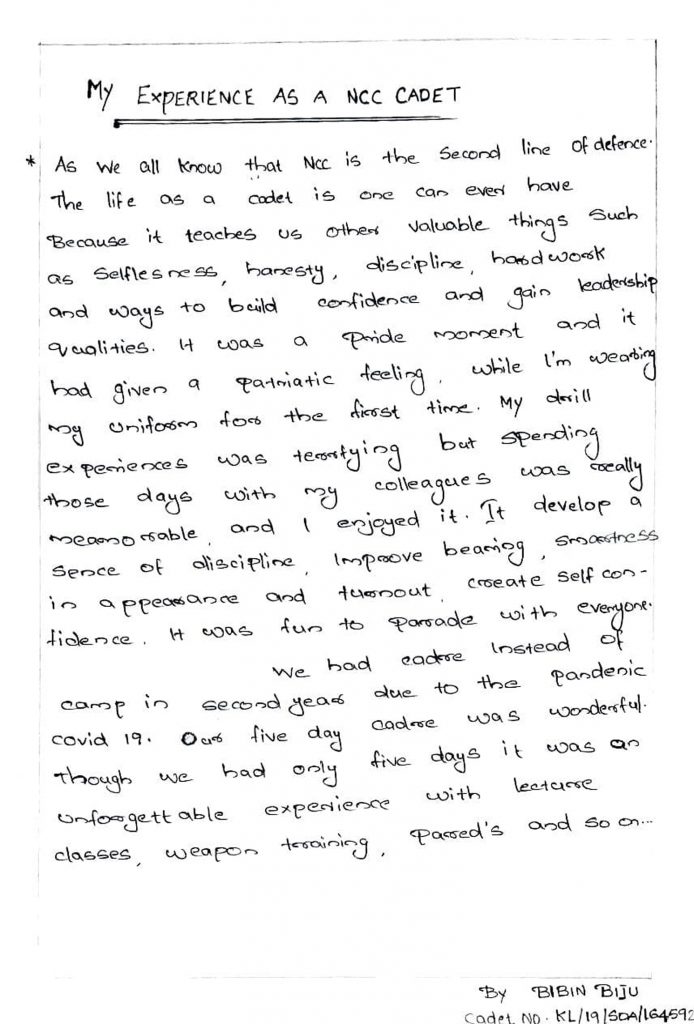 My EXPERIENCE AS A NCC CADET
* As we all know that NCC is the second line of defence.
The life as a cadet is one can ever have
Because it teaches us other valuable things such
as selflesness, honesty, discipline, hardwork
and ways to build confidence and gain leadership
qualities. It was a pride moment and it
had given a patriatic feeling, while I'm wearing
my uniform for the first time. My drill
experiences was terrifying but spending
those days with my colleagues was really
meamorable, and I enjoyed it. It develop a
sence of discipline, Improve bearing, smartness
in appearance and turnout, create self con-
fidence. It was fun to parade with everyone.
We had cadre instead of
camp in second year due to the pandenic
covid 19. Our five day cadre was wonderful.
though we had only five days it was an
unforgettable experience with lecture
classes, weapon training, parred's and so on...
By BIBIN BIJU
Cadet No. KL/19/SDA/164592